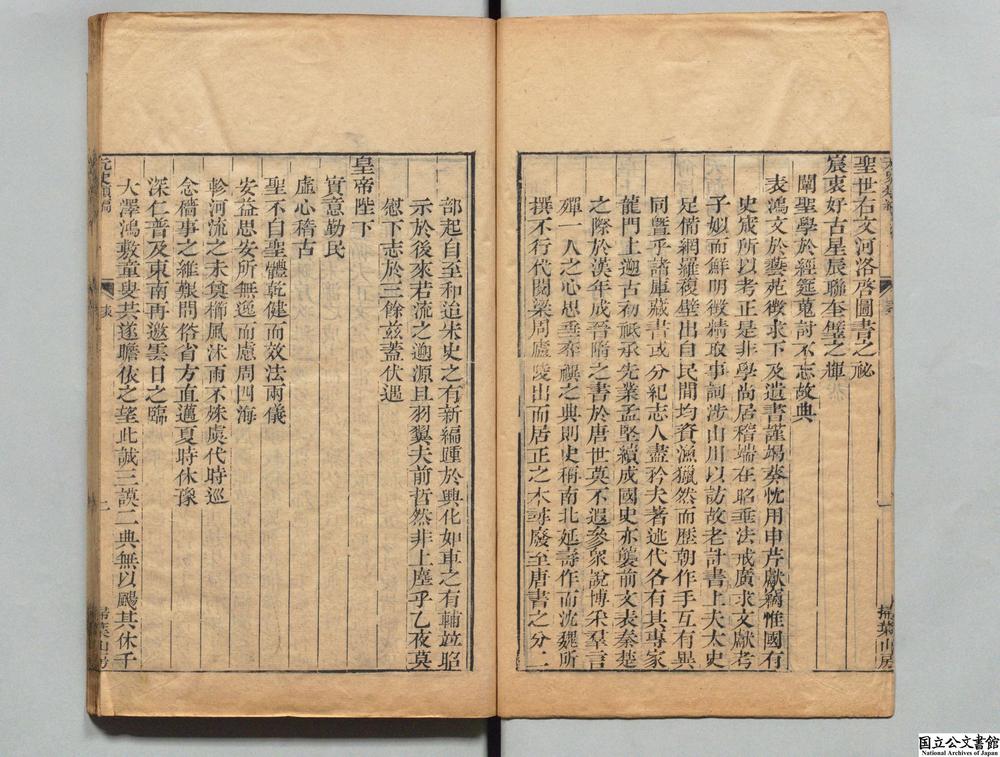 聖世右文河洛啓圖書之祕
宸衷好古星辰聯奎璧之輝
闡聖學於經筵蒐討不忘故典
表鴻文於藝苑徵求下及遺書謹竭葵忱用申芹獻竊惟國有
史宬所以考正是非學尚居稽端在昭垂法戒廣求文獻考
子姒而鮮明徵精取事詞涉山川以訪故老計書上夫太史
足備網羅複壁出自民間均資漁獵然而歷朝作手互有異
同曁乎諸庫藏書或分紀志人盡矜夫著述代各有其專家
龍門上遡古初祗承先業孟堅續成國史亦襲前文表秦楚
之際於漢年成晉隋之書於唐世莫不遐參衆說博采羣言
殫一人之心思垂奕禩之典則史稱南北延壽作而沈魏所
撰不行代閱梁周盧陵出而居正之本寻廢至唐書之分二
部起自至和迨宋史之有新編踵於興化如車之有輔竝昭
示於後來若流之遡源且羽翼夫前哲然非上塵乎乙夜莫
慰下志於三餘茲蓋伏遇
皇帝陛下
實意勤民
虛心稽古
聖不自聖體乾健而效法兩儀
安益思安所無逸而慮周四海
軫河流之未奠櫛風沐雨不殊虞代時巡
念穡事之維艱問俗省方直邁夏時休豫
深仁普及東南再邀雲日之臨
大澤鴻敷童叟共遂瞻依之望此誠三謨二典無以颺其休千
元史類編
表
二
掃葉山房
国立公文書館
National Archives of Japan